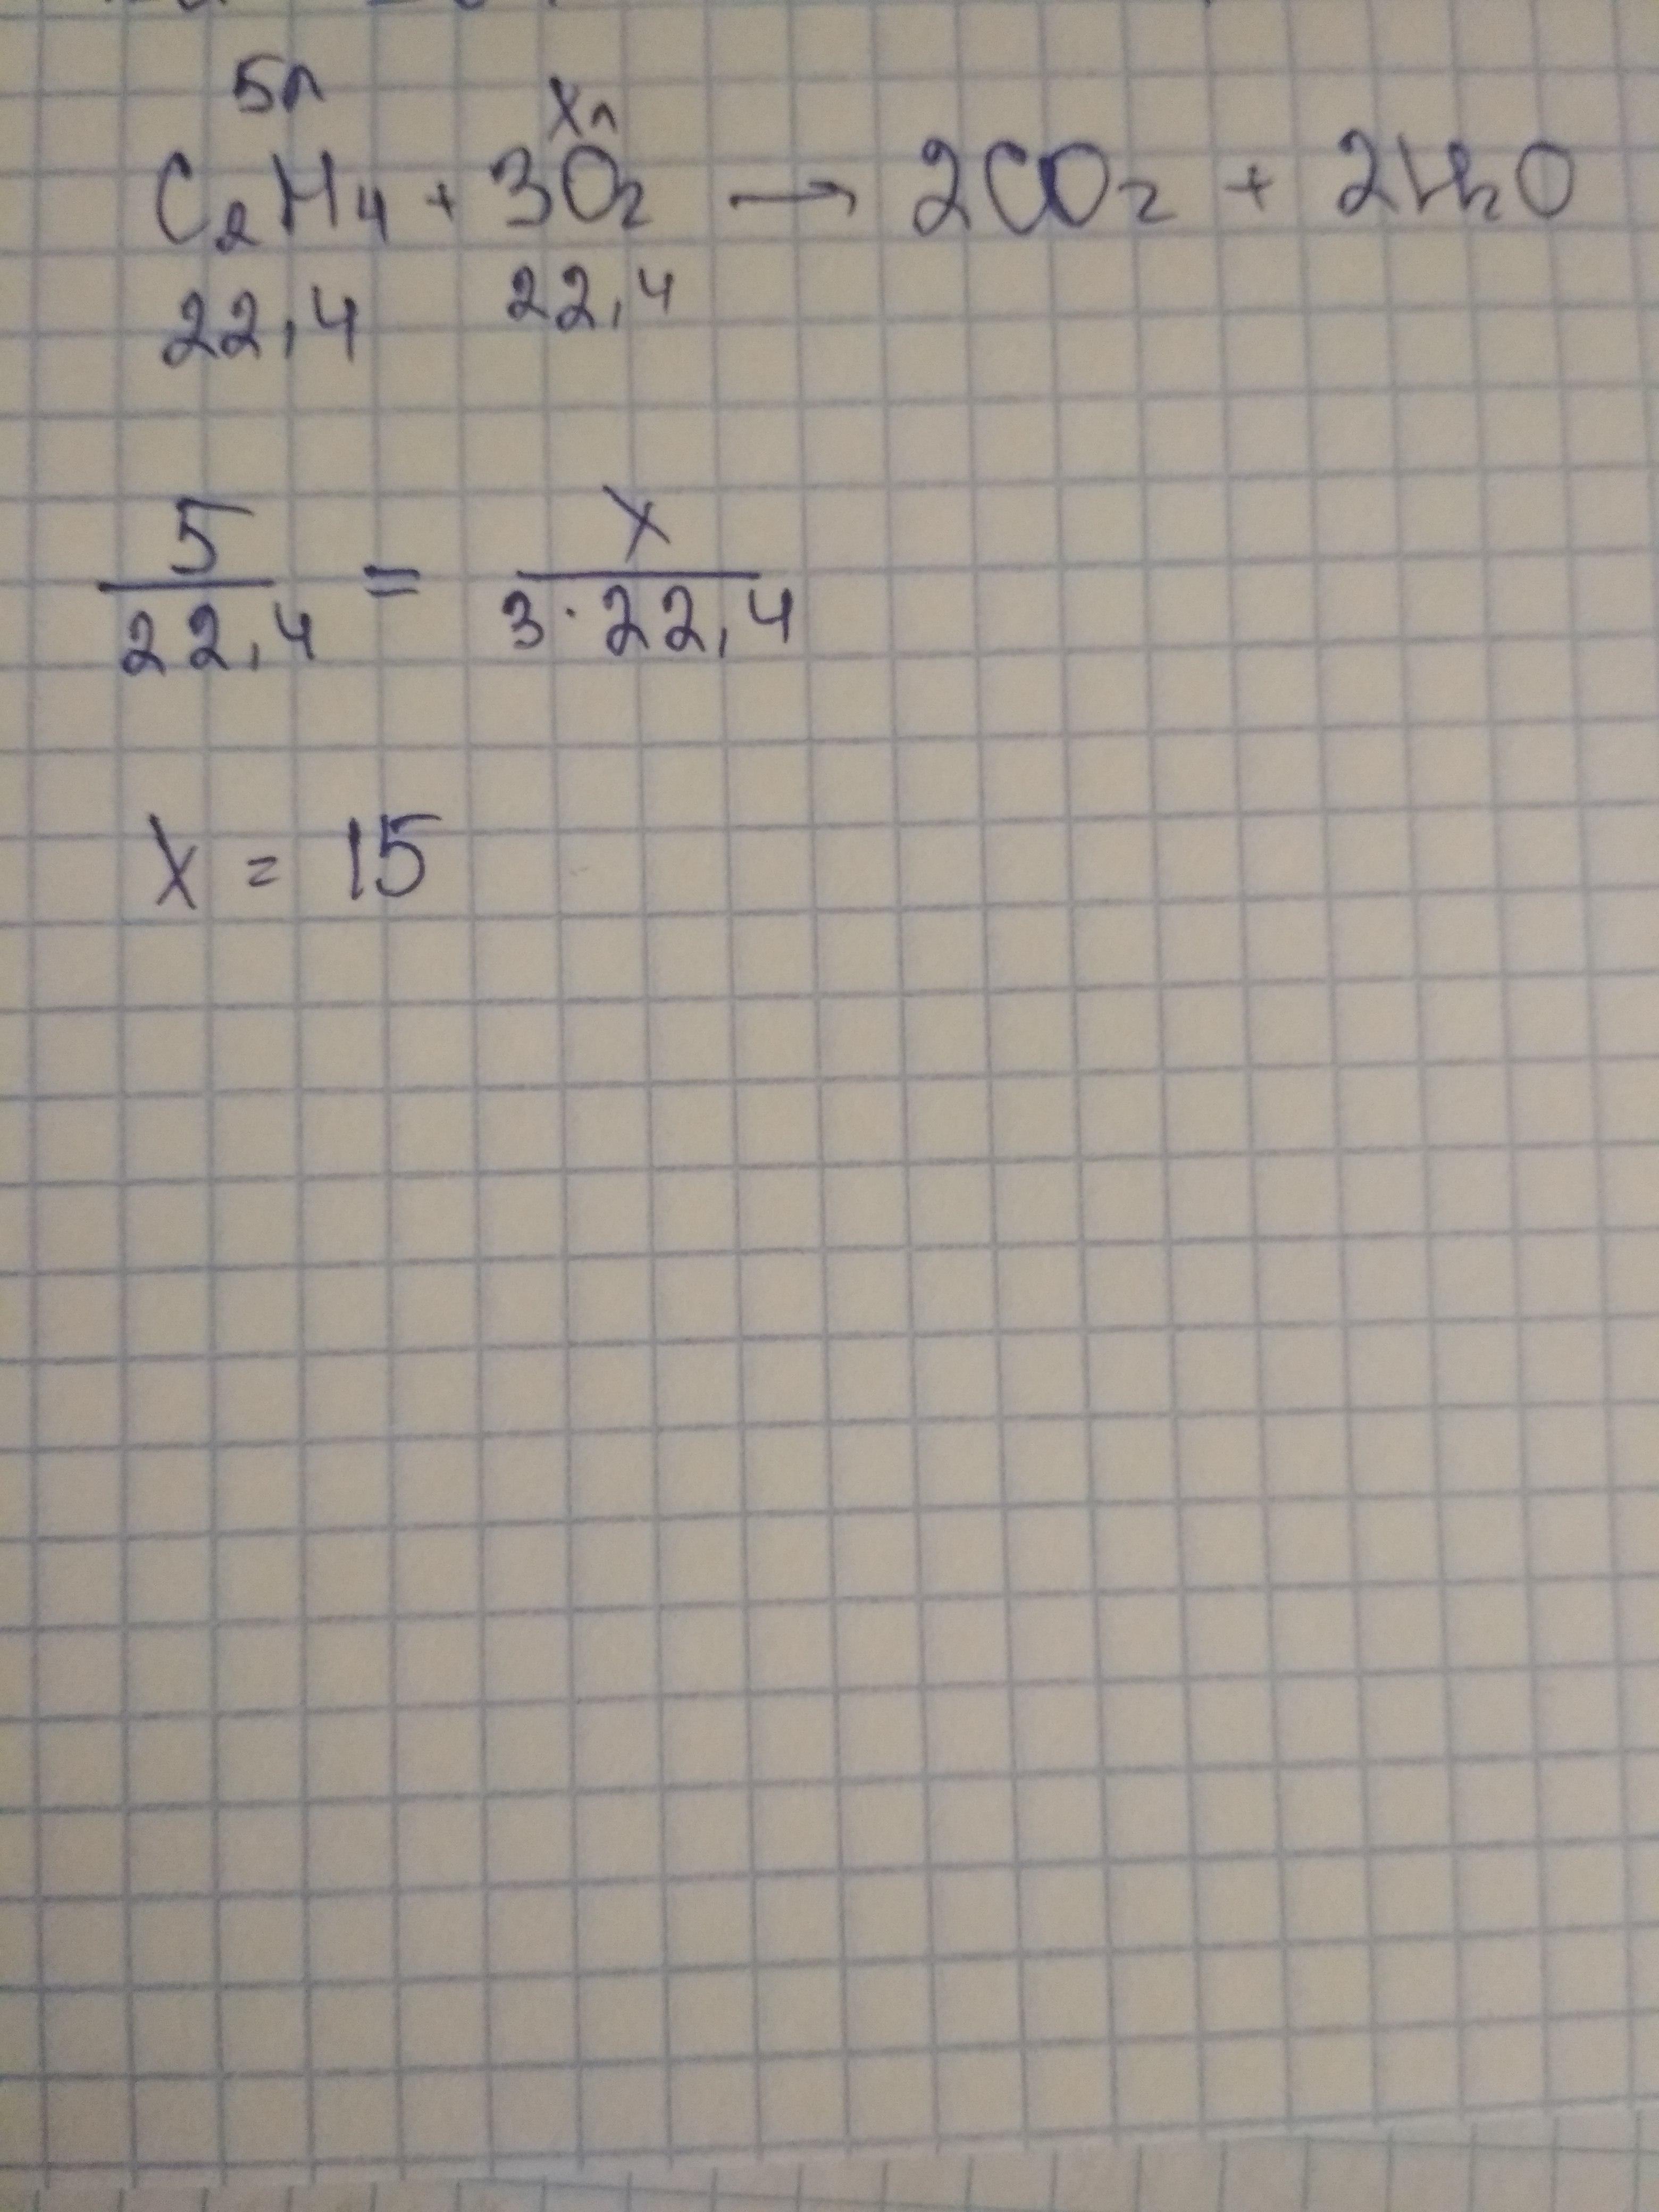 5л xл
C₂H₄ + 3O₂ → 2CO₂ + 2H₂O
22,4 22,4
5/22,4 = x/3·22,4
x = 15